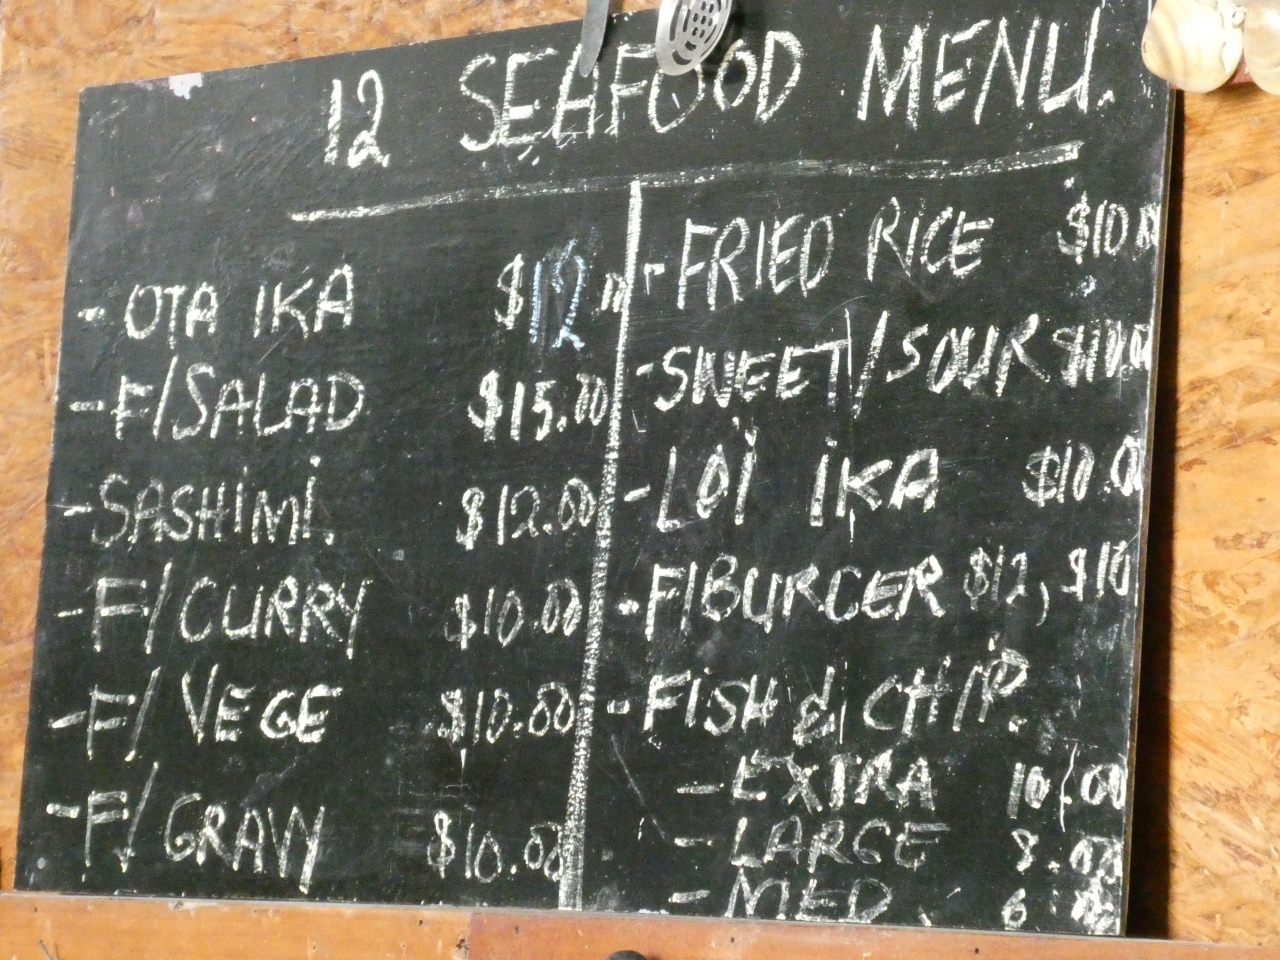 12 SEAFOOD MENU.
- OTA IKA $12
- F/SALAD $15.00
- SASHIMI. $12.00
- F/ CURRY $10.00
- F/ VEGE $10.00
- F/ GRAVY $10.00
- FRIED RICE $10.0
- SWEET/SOUR $10.00
- LOI IKA $10.00
- F/BURGER $12, $10
- FISH & CHIP.
- EXTRA 10.00
- LARGE 8.00
- MED. 6